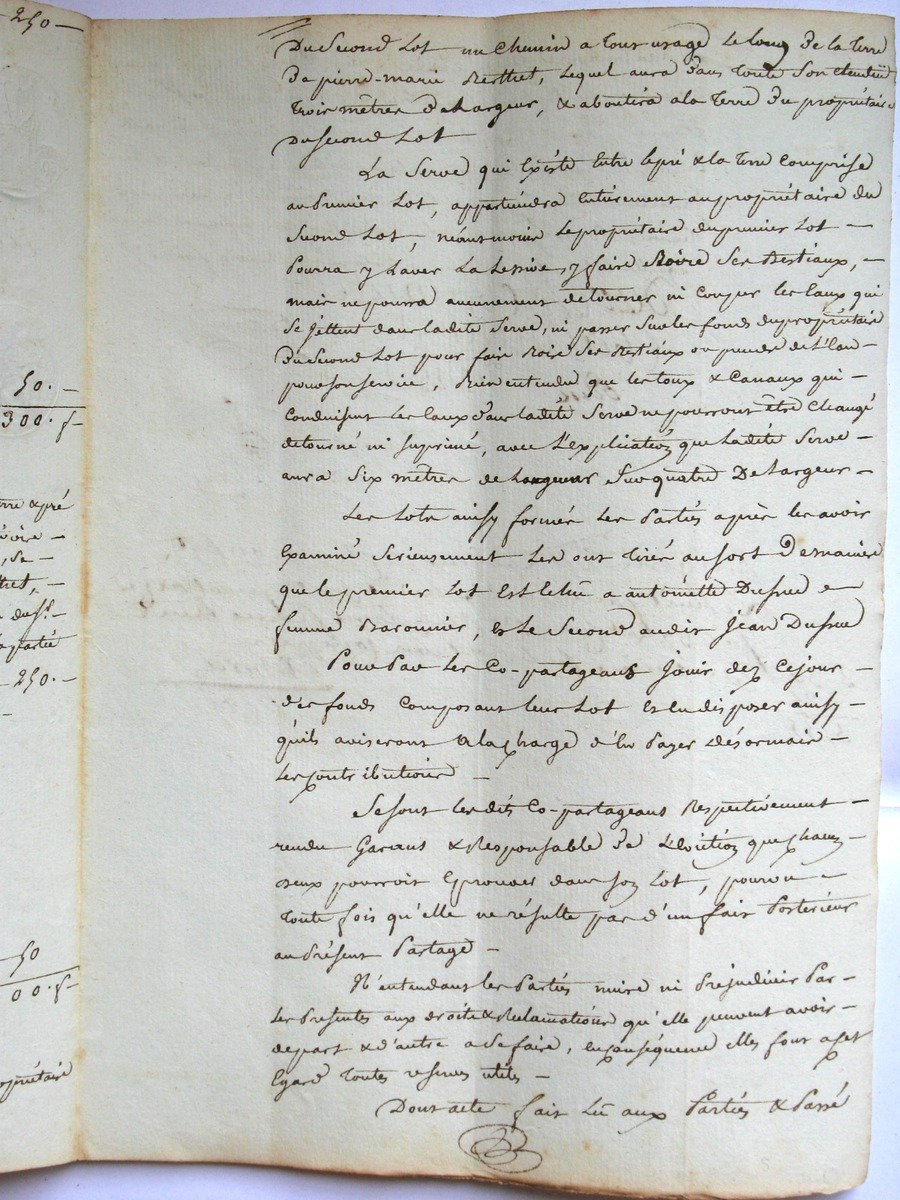 250 —
50. —
300. f —
terre & pré
, se —
— dusd.
la partie
— 250. —
50
00. f —
propriétaire
Du Second Lot un chemin a tour usage Le long De la Terre
De pierre-marie Berthet, Lequel aura Dans toute Son Etendüe
trois mêtres De Largeur, & aboutira a la Terre Du propriétaire
Du Second Lot
La Serve qui Existe Entre le pré & la terre comprise
au Premier Lot, appartiendra Entièrement au propriétaire du
Second Lot, néantmoins Le propriétaire du premier Lot —
Pourra y Laver La Lessive, y faire Boire Ses Bestiaux, —
mais ne pourra aucunement detourner ni Couper les Eaux qui
Se Jettent dans ladite Serve, ni passer Sur les fonds du propriétaire
Du Second Lot pour faire Boire Ses Bestiaux ou prendre de L'Eau —
pour son service, Bien entendu que les toux & Canaux qui —
Conduisent Les Eaux dans ladite Serve ne pourront être Changé
détourné ni suprimé, avec L'explication que Ladite Serve —
aura Six mètres de Longueur Sur quatre De Largeur —
Les Lots ainsy formés Les Parties après les avoir
Examiné Serieusement Les ont Tirés au Sort De manière
que le premier Lot Est Echu a antoinette Dufrue
femme Baronnier, et le Second audit Jean Dufrue
Pour Par Les Co-partageans Jouir dez Ce jour —
des fonds Composant leur Lot Et En disposer ainsy —
qu'ils aviseront a la Charge d'En Payer Désormais —
Les Contributions —
Se sont lesdits Co-partageans Respectivement —
rendu Garans & Responsable De L'Eviction que Chacun —
d'eux pourroit Eprouver dans son Lot, pourvu —
Toute fois qu'elle ne résulte pas d'un fait Postérieur
au Présent Partage —
N'entendans les Parties nuire ni Préjudicier Par —
Les Présentes aux droits & Réclamations qu'elle peuvent avoir —
de part & d'autre a Se faire, en conséquence elles font a cet
Egard Toutes reserves utiles —
Dont acte fait Lû aux Parties & Passé